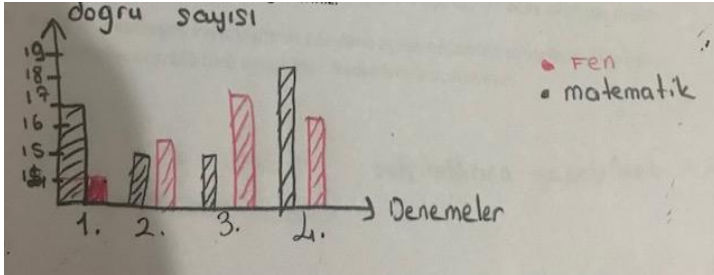 doğru sayısı
19
18
17
16
15
14
1. 2. 3. 4.
Denemeler
• Fen
• matematik